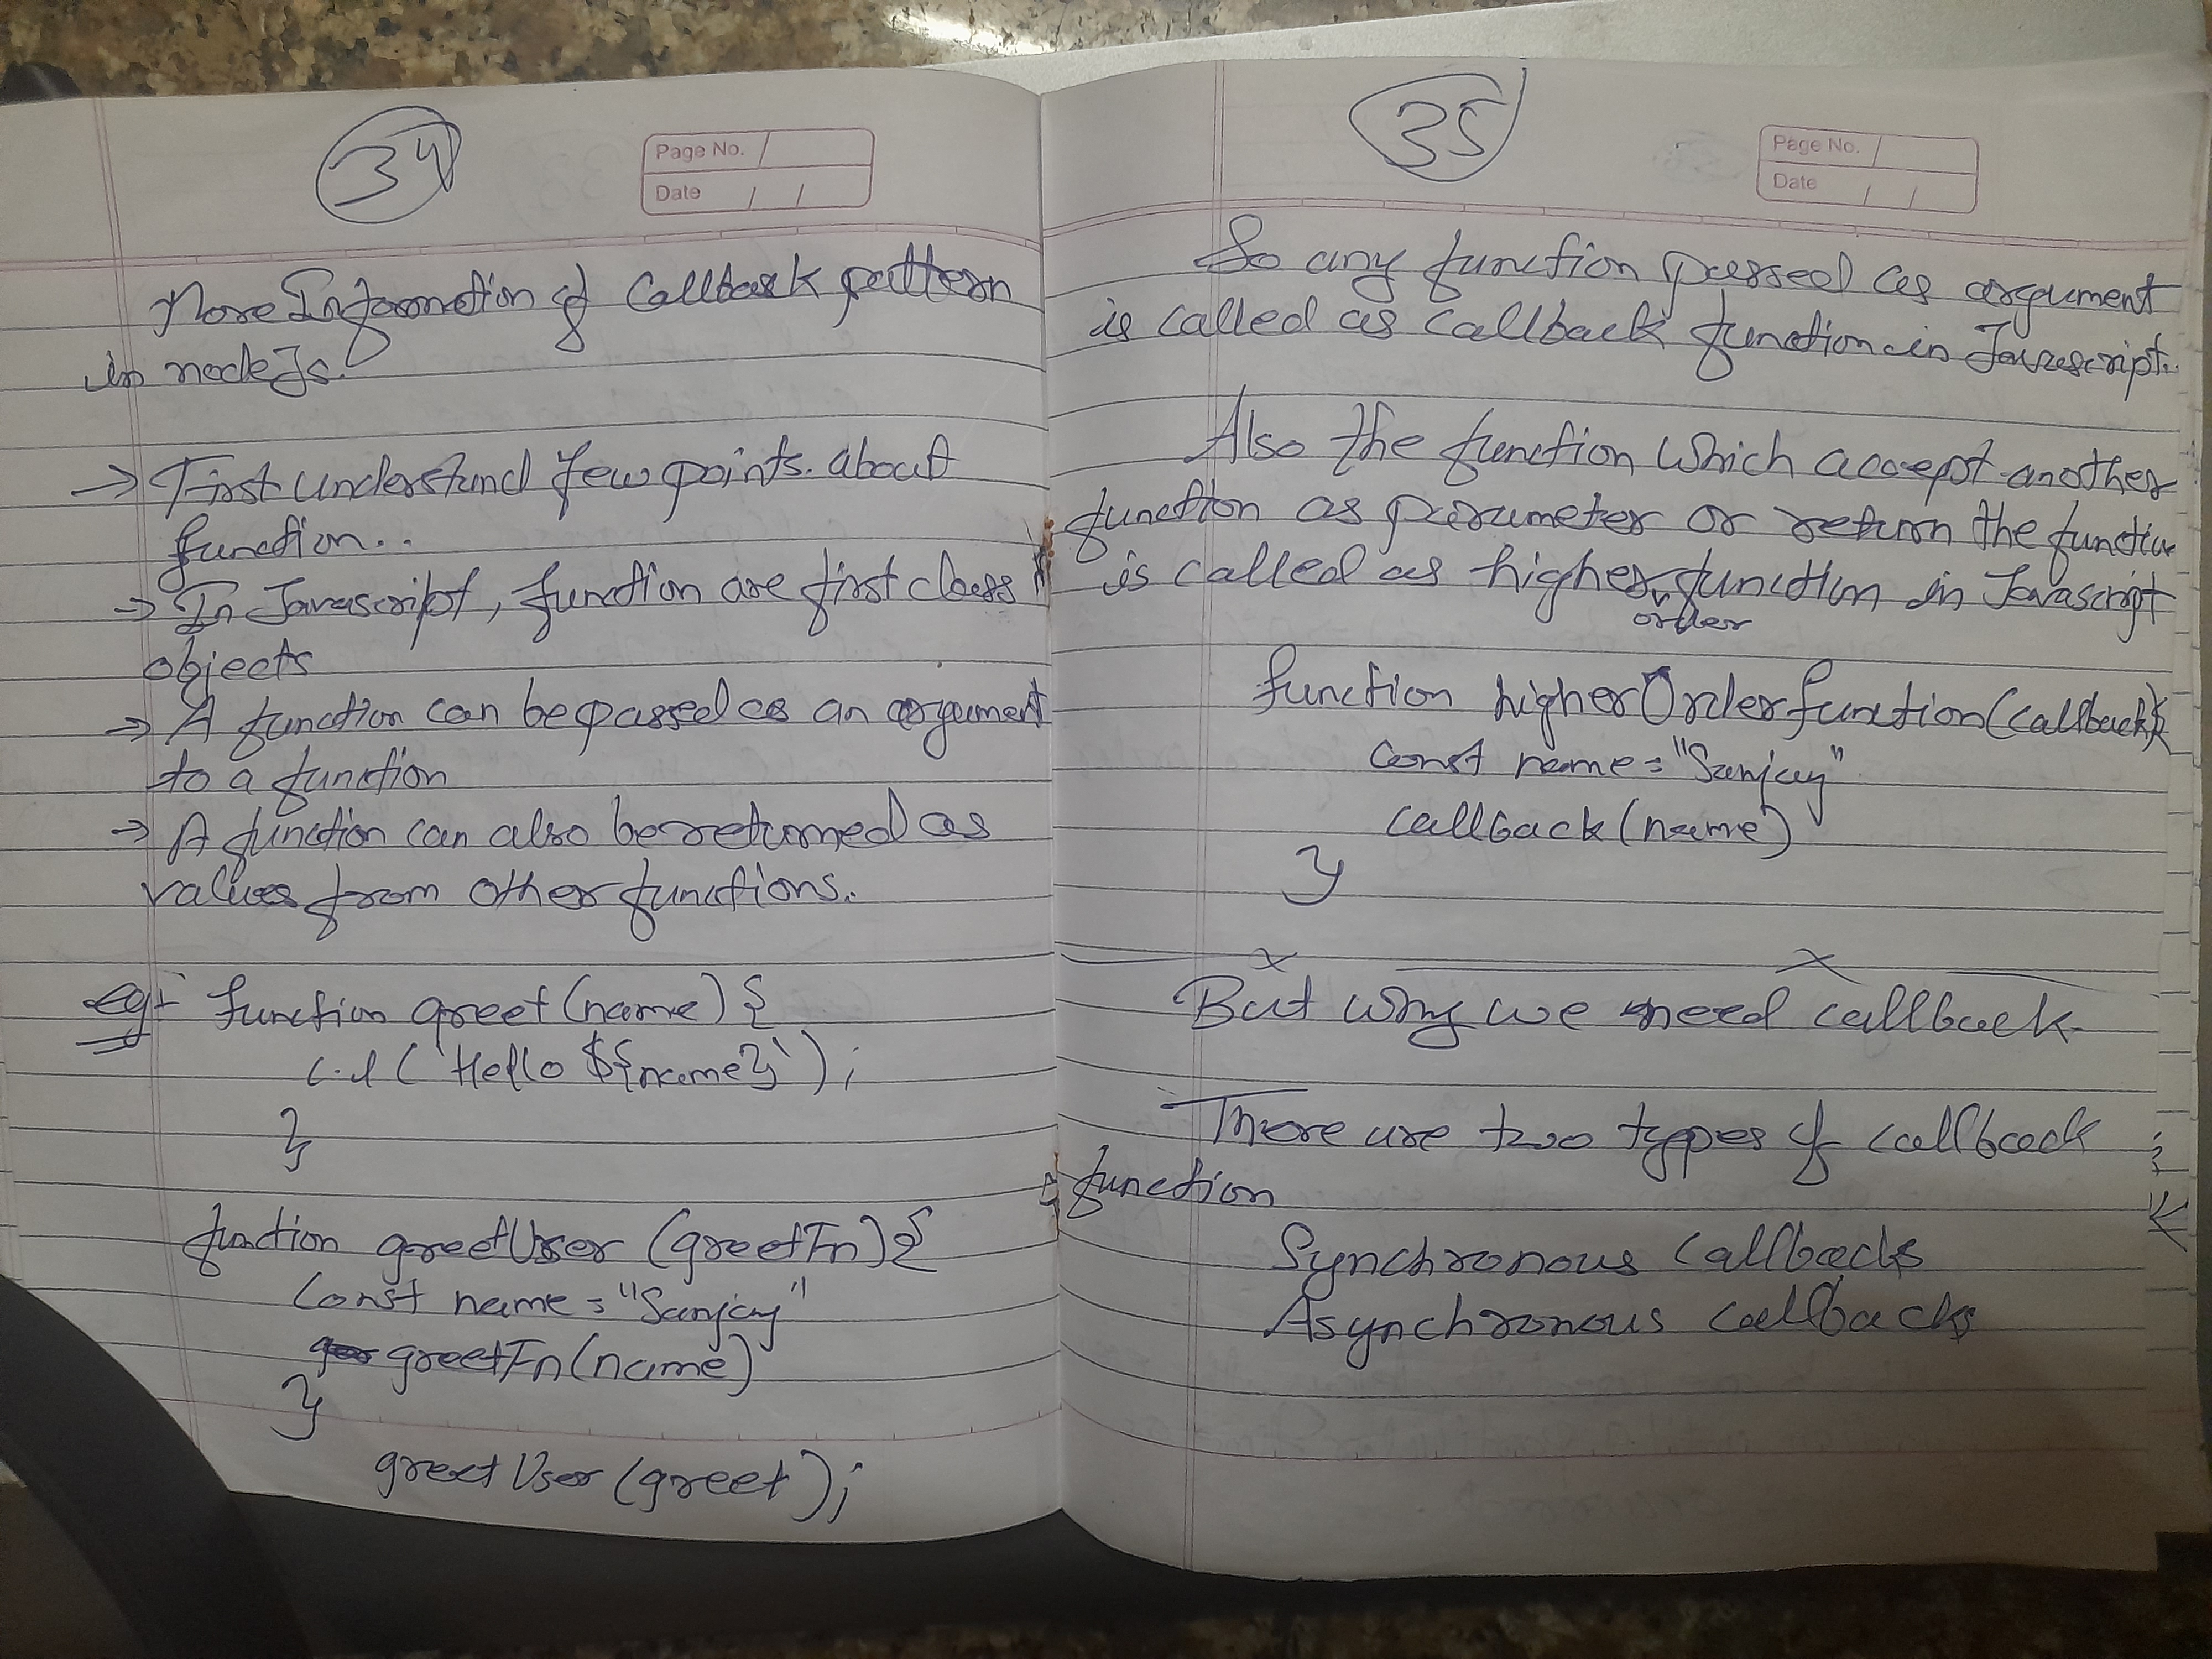 34
Page No.
Date
More Information of Callback pattern
in node Js.
→ First understand few points. about
function..
→ In Javascript, function are first class
objects
→ A function can be passed as an argument
to a function
→ A function can also be returned as
values from other functions.
Eg:- function greet(name) {
c.l (`Hello ${name}`);
}
function greetUser (greetFn) {
const name = "Sanjay"
greetFn(name)
}
greetUser (greet);
35
Page No.
Date
So any function passed as argument
is called as callback function in Javascript.
Also the function which accept another
function as parameter or return the function
is called as higher order function in Javascript
function higherOrderfunction(callback){
const name = "Sanjay"
callback(name)
}
But why we need callback
There are two types of callback
function
Synchronous callbacks
Asynchronous callbacks